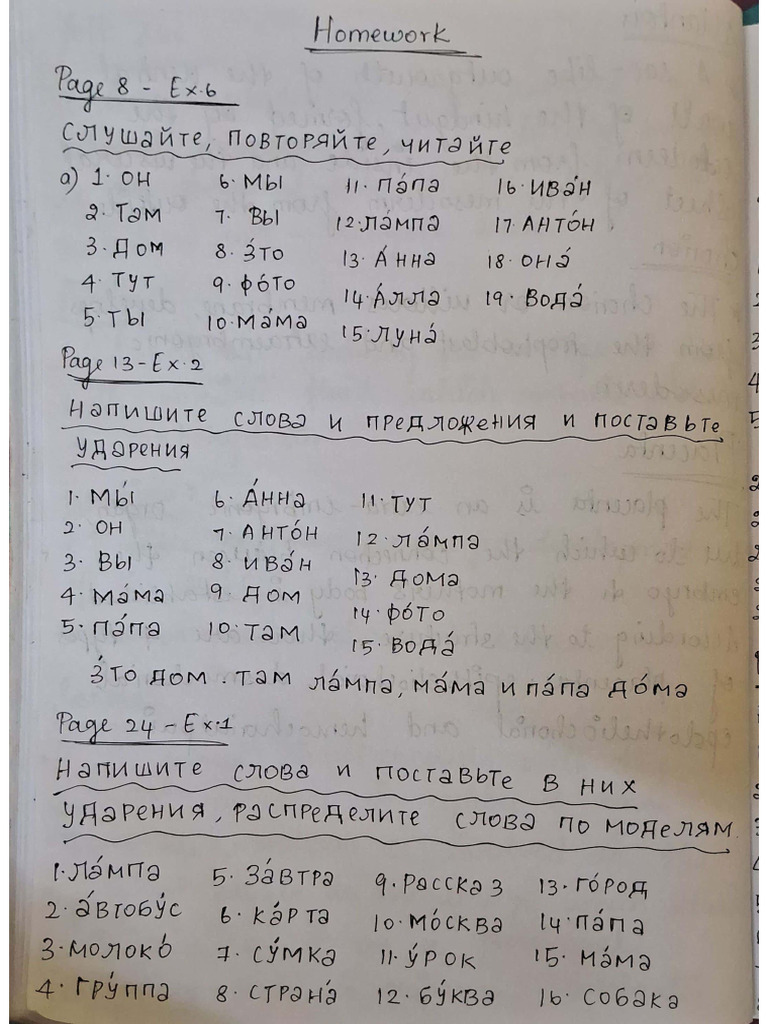 Homework
Page 8 - Ex.6
СЛУШАЙТЕ, ПОВТОРЯЙТЕ, ЧИТАЙТЕ
а) 1. ОН 6. МЫ 11. ПА́ПА 16. ИВА́Н
2. ТАМ 7. ВЫ 12. ЛА́МПА 17. АНТО́Н
3. ДОМ 8. Э́ТО 13. А́ННА 18. ОНА́
4. ТУТ 9. ФО́ТО 14. А́ЛЛА 19. ВОДА́
5. ТЫ 10. МА́МА 15. ЛУНА́
Page 13 - Ex.2
НАПИШИТЕ СЛОВА И ПРЕДЛОЖЕНИЯ И ПОСТАВЬТЕ
УДАРЕНИЯ
1. МЫ́ 6. А́ННА 11. ТУТ
2. ОН 7. АНТО́Н 12. ЛА́МПА
3. ВЫ 8. ИВА́Н 13. ДОМА
4. МА́МА 9. ДОМ 14. ФО́ТО
5. ПА́ПА 10. ТАМ 15. ВОДА́
Э́ТО ДОМ. ТАМ ЛА́МПА, МА́МА И ПА́ПА ДО́МА
Page 24 - Ex.1
НАПИШИТЕ СЛОВА И ПОСТАВЬТЕ В НИХ
УДАРЕНИЯ, РАСПРЕДЕЛИТЕ СЛОВА ПО МОДЕЛЯМ.
1. ЛА́МПА 5. ЗА́ВТРА 9. РАССКАЗ 13. ГО́РОД
2. А́ВТОБУ́С 6. КА́РТА 10. МО́СКВА 14. ПА́ПА
3. МОЛОКО́ 7. СУ́МКА 11. У́РОК 15. МА́МА
4. ГРУ́ППА 8. СТРАНА́ 12. БУ́КВА 16. СОБАКА